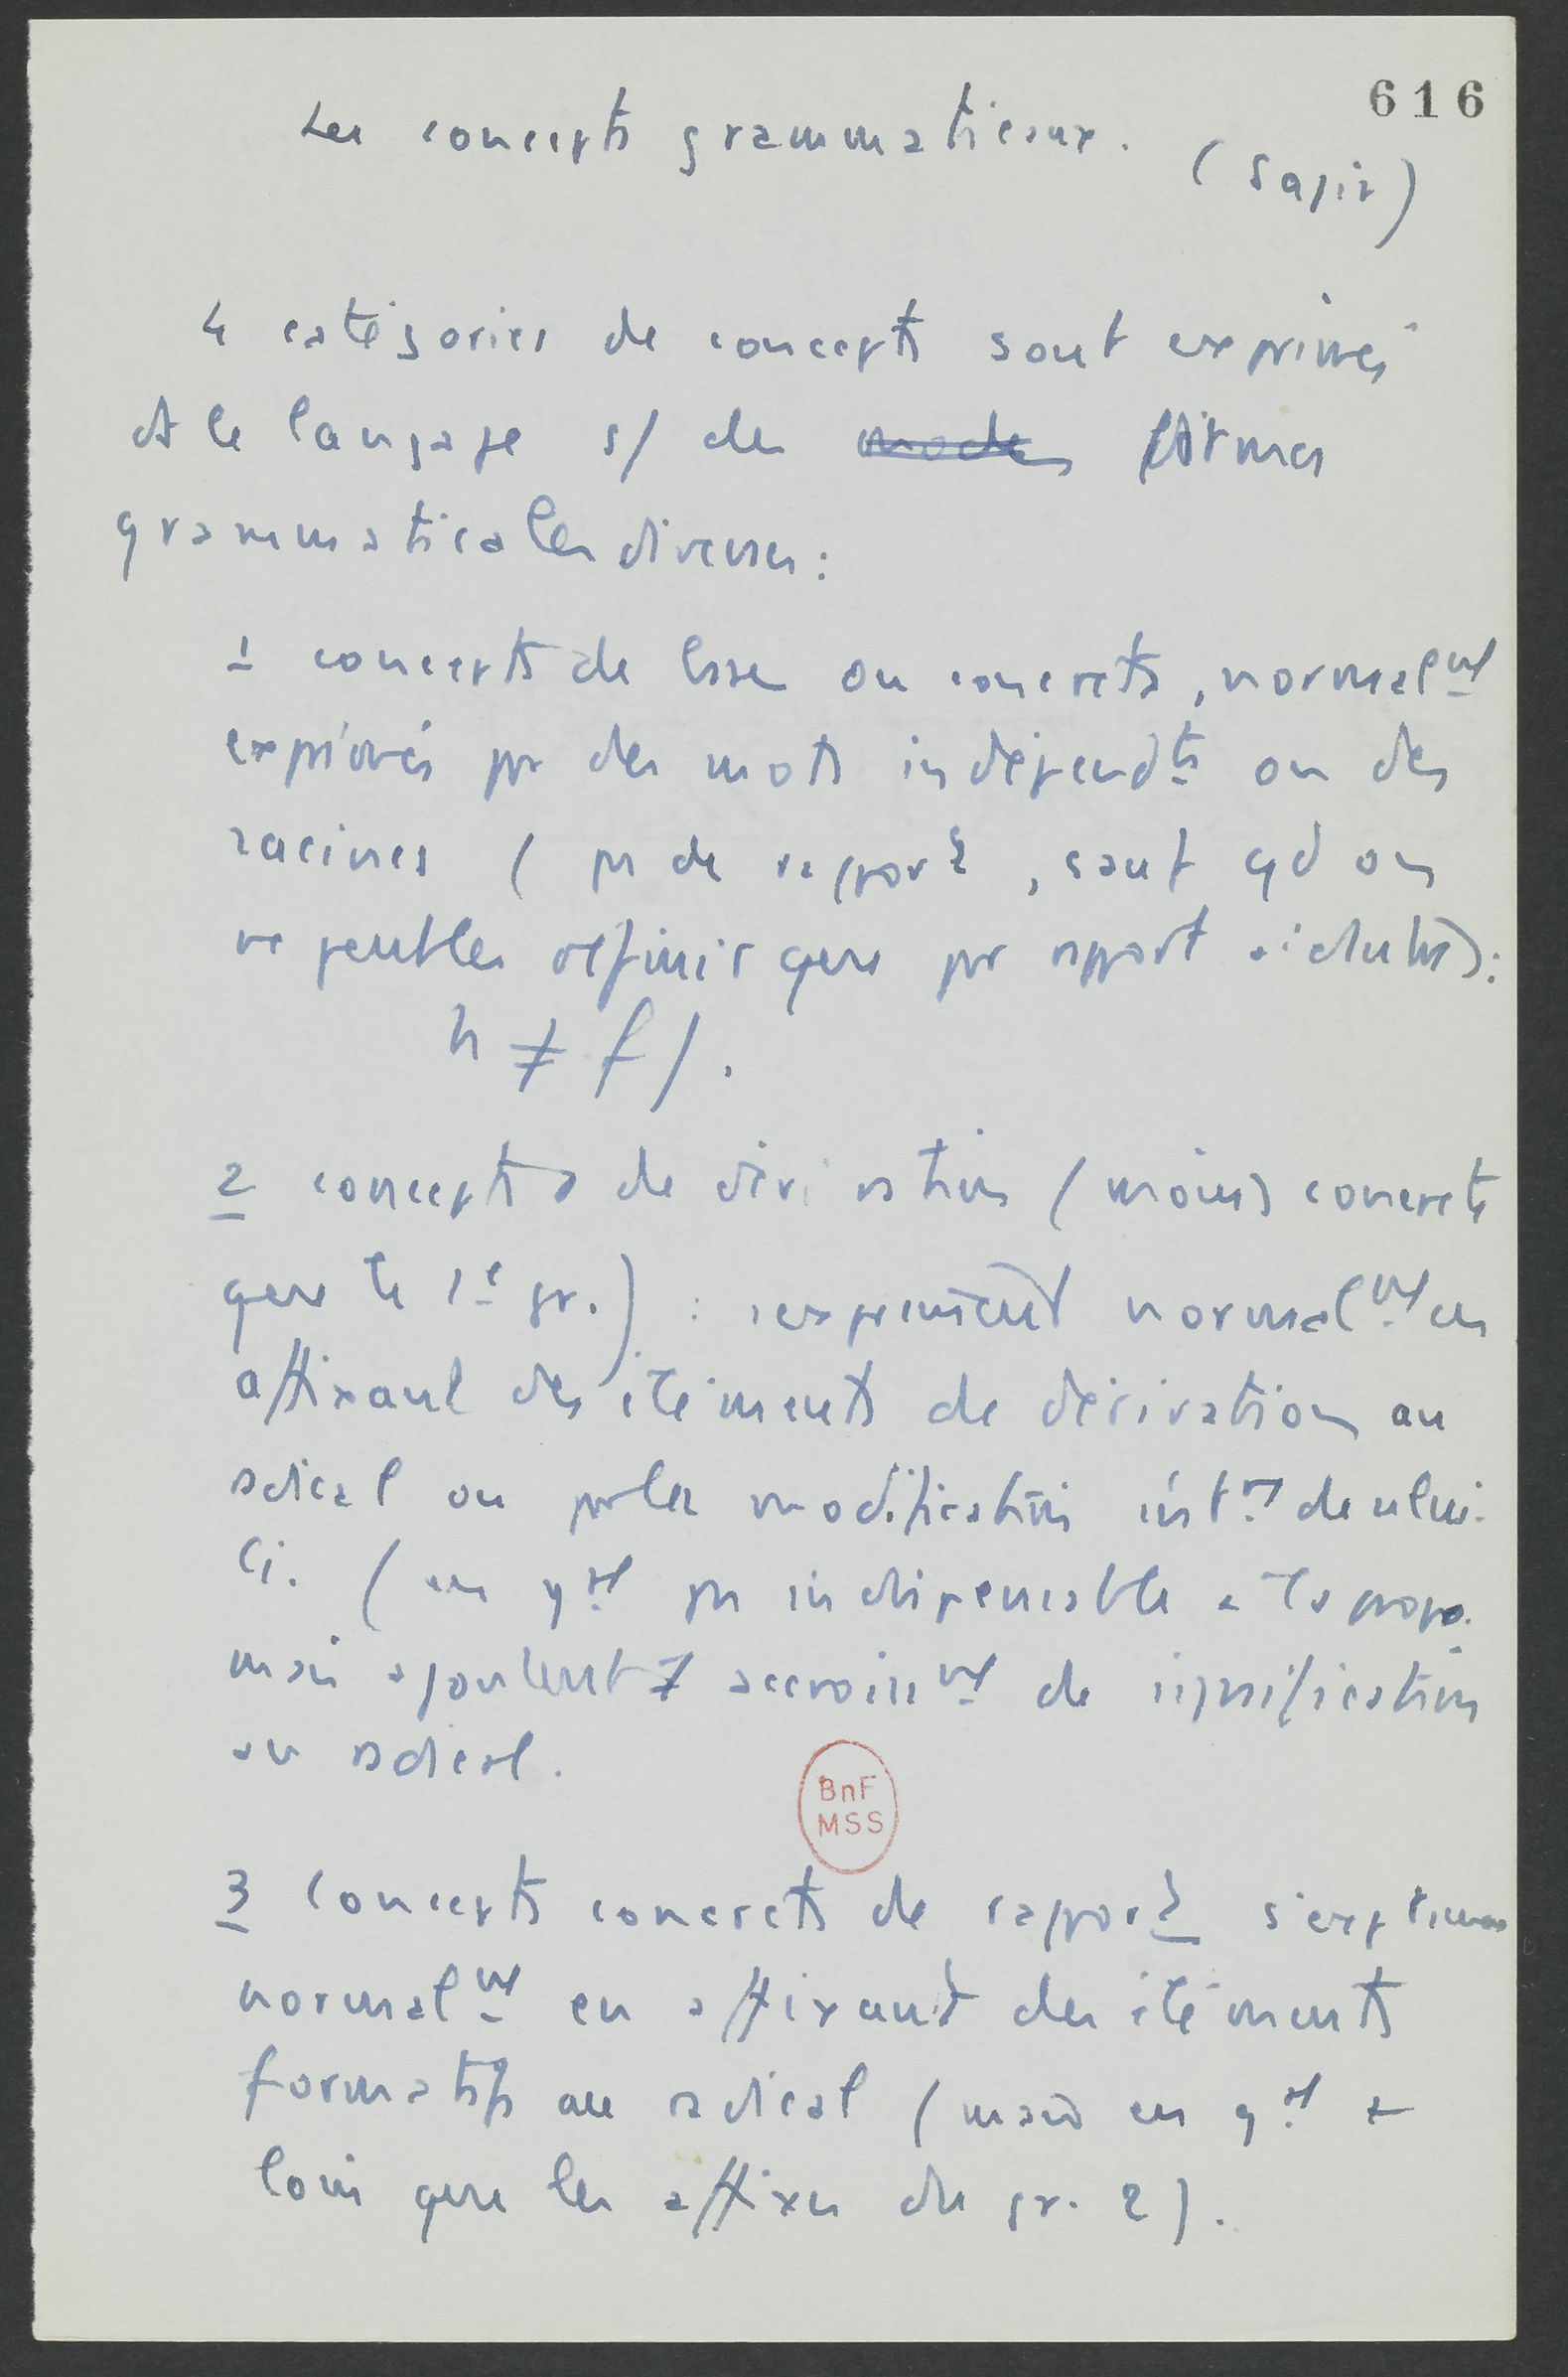 616
Les concepts grammaticaux.
(Sapir)
4 catégories de concepts sont exprimés
ds le langage s/ des modes formes
grammaticales diverses :
1 concepts de base ou concrets, normalmt
exprimés par des mots indépendts ou des
racines ( pas de rapport, sauf qd on
ne peut les définir que par rapport à d'autres) :
h ≠ f / .
2 concepts de dérivation (moins concrets
que le 1e gr.) : s'expriment normalmt en
affixant des éléments de dérivation au
radical ou par la modification intre de celui-
ci. ( en gal pas indispensable à la propo.
mais ajoutent ≠ accroissmt de signification
au radical.
BnF
MSS
3 Concepts concrets de rapport s'expriment
normalmt en affixant des éléments
formatifs au radical (mais en gal +
loin que les affixes du gr. 2).